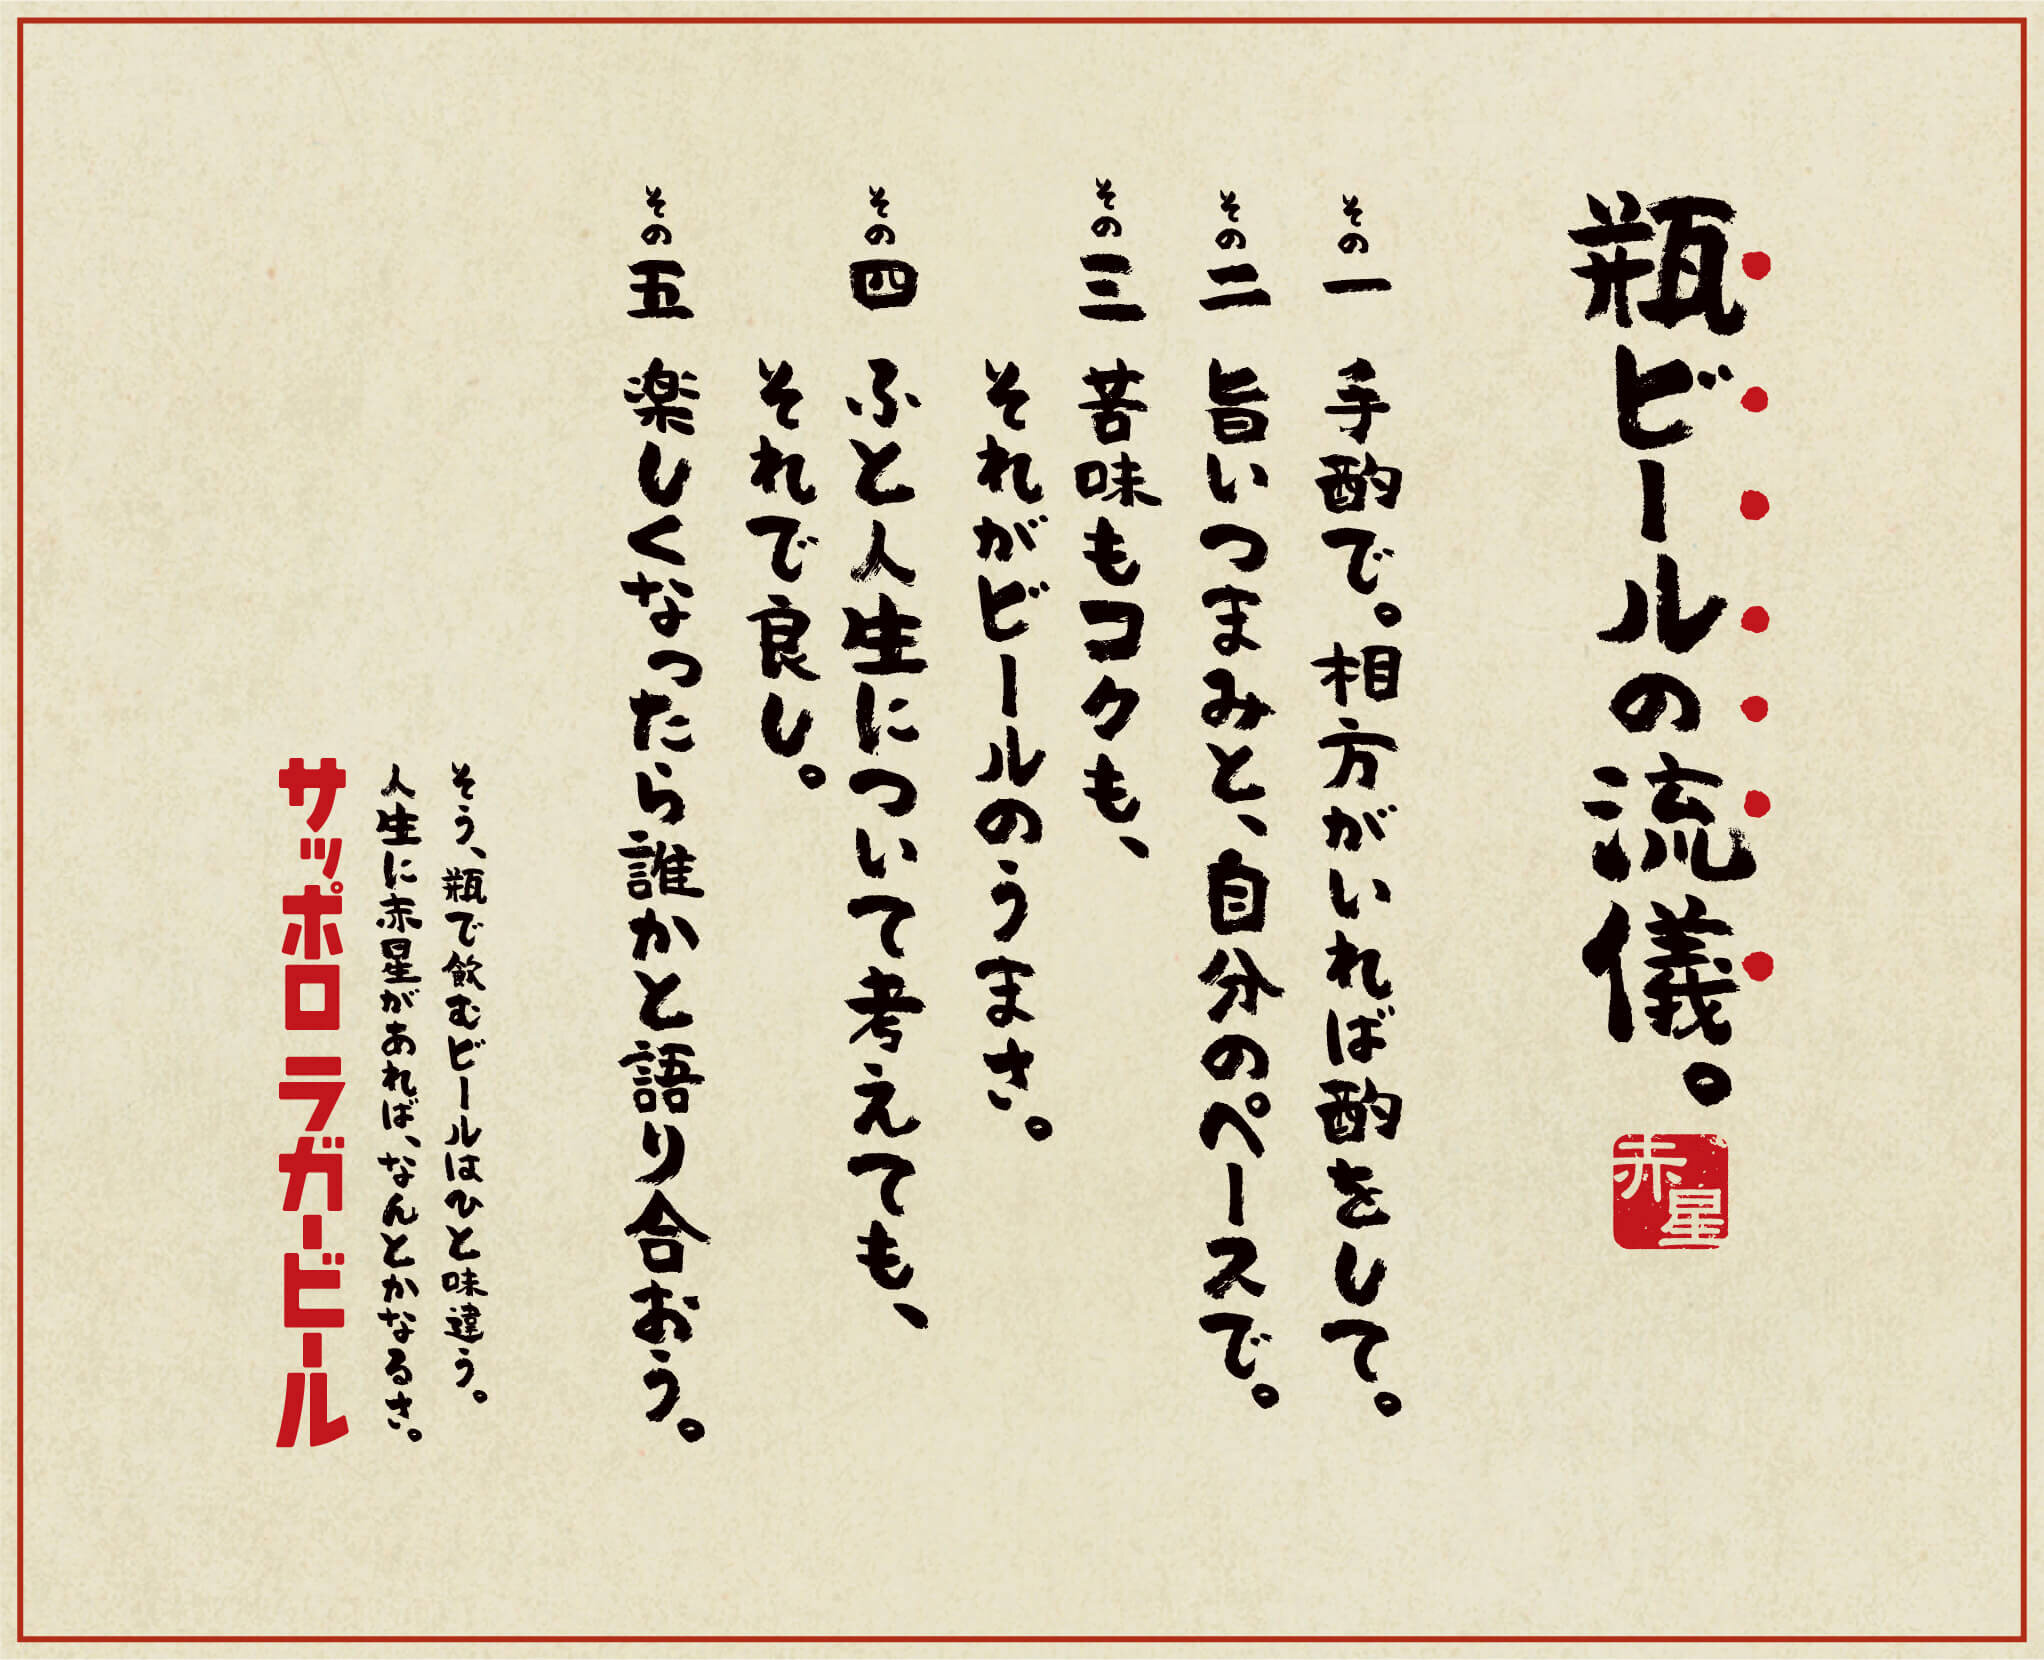 瓶ビールの流儀。
赤星
その一 手酌で。相方がいれば酌をして。
その二 旨いつまみと、自分のペースで。
その三 苦味もコクも、
それがビールのうまさ。
その四 ふと人生について考えても、
それで良し。
その五 楽しくなったら誰かと語り合おう。
そう、瓶で飲むビールはひと味違う。
人生に赤星があれば、なんとかなるさ。
サッポロ ラガービール